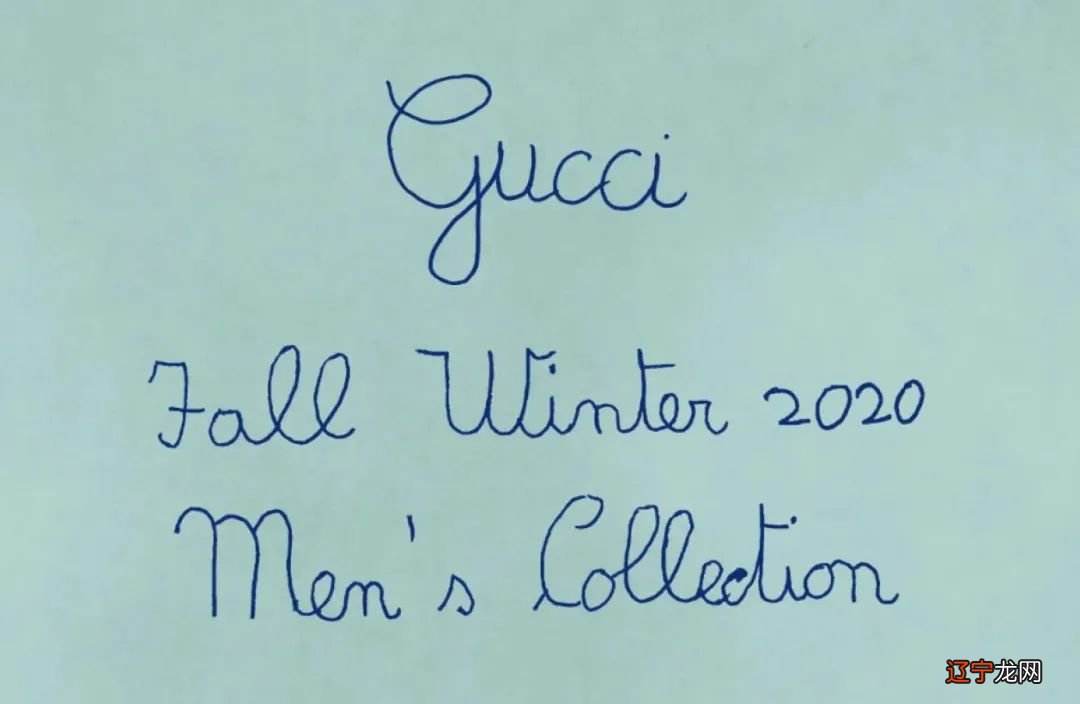 Gucci
Fall Winter 2020
Men's Collection
辽宁龙网